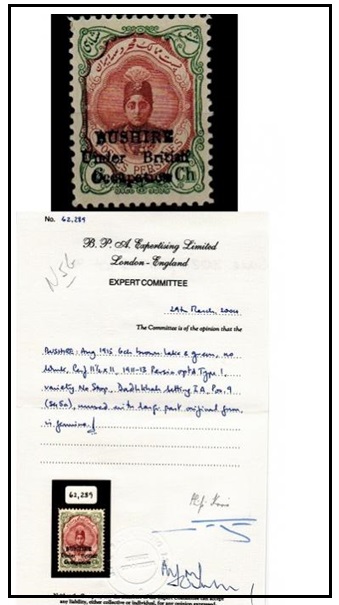 BUSHIRE
Under British
Occupation
6 Ch
No. 62,289
B. P. A. Expertising Limited
London - England
EXPERT COMMITTEE
29th March 2000
The Committee is of the opinion that the
BUSHIRE: Aug 1915 6ch brown-lake & green, no
wmk, Perf 11½ x 11, 1911-13 Persia optd Type 1,
variety No Stop, Dadkhah Setting IA, Pos. 9
(SG5a), unused with large part original gum,
is genuine.
62,289
BUSHIRE
any liability, either collective or individual, for any opinion